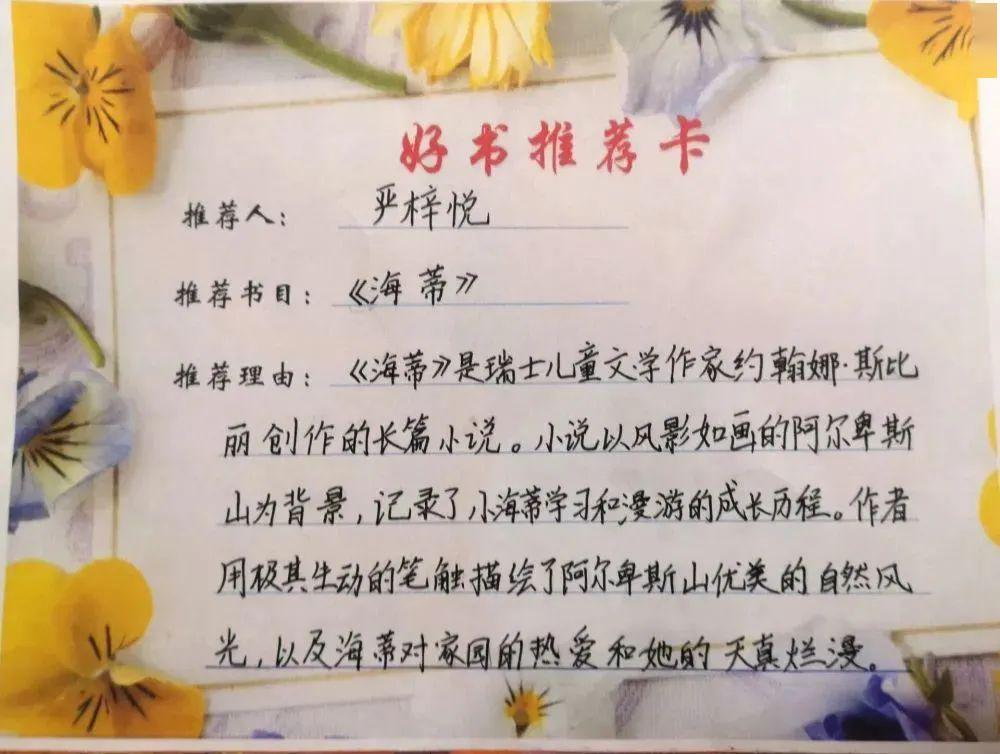 好书推荐卡
推荐人：严梓悦
推荐书目：《海蒂》
推荐理由：《海蒂》是瑞士儿童文学作家约翰娜·斯比
丽创作的长篇小说。小说以风影如画的阿尔卑斯
山为背景，记录了小海蒂学习和漫游的成长历程。作者
用极其生动的笔触描绘了阿尔卑斯山优美的自然风
光，以及海蒂对家园的热爱和她的天真烂漫。